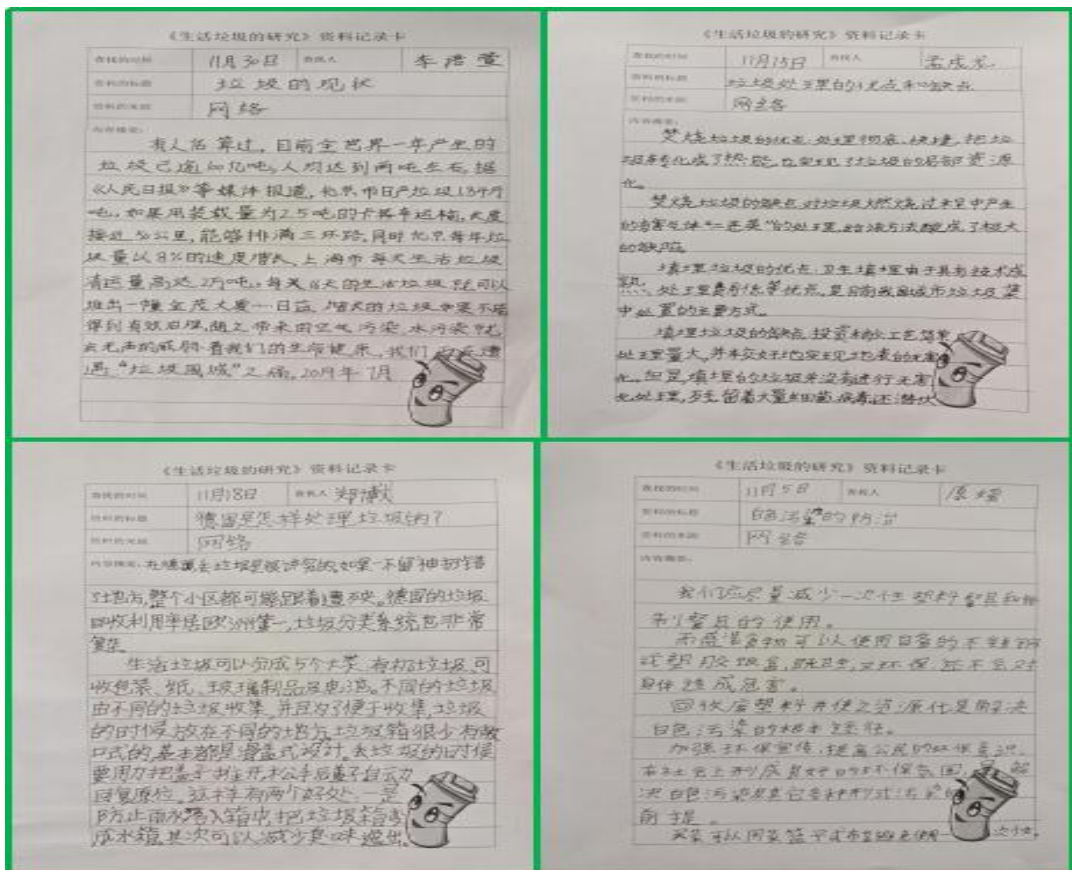 《生活垃圾的研究》资料记录卡
查找的时间 11月30日 查找人 李浩萱
资料的标题 垃圾的现状
资料的来源 网络
内容摘要:
有人估算过，目前全世界一年产生的
垃圾已逾 亿吨，人均达到两吨左右。据
《人民日报》等媒体报道，北京市日产垃圾1.84万
吨，如果用装载量为2.5吨的卡车运输，长度
接近50公里，能够排满三环路。同时北京每年垃
圾量以8%的速度增长，上海市每天生活垃圾
清运量高达2万吨，每 天的生活垃圾就可以
堆出一幢金茂大厦…日益增长的垃圾如果不能
得到有效 ，随之带来的空气污染、水污染
无声的威胁着我们的生命健康，我们 遭
遇“垃圾围城”之痛。2019年7月
《生活垃圾的研究》资料记录卡
查找的时间 11月15日 查找人 孟成
资料的标题 垃圾处理的优点和缺点
资料的来源 网络
内容摘要:
焚烧垃圾的优点:处理彻底、快捷，把垃
圾转化成了热能，也实现了垃圾的局部资源
化。
焚烧垃圾的缺点:对垃圾燃烧过程中产生
的有害气体“二恶英”的处理 方法 成了极大
的缺陷
填埋垃圾的优点:卫生填埋由于具有技术成
熟、处理费用低等优点，是目前我国城市垃圾集
中处置的主要方式。
填埋垃圾的缺点:投资 工艺简单
处理量大，并较好地实现了地表的无害
化。但是，填埋的垃圾并没有进行无害
化处理，残留着大量细菌、病毒；还潜伏
《生活垃圾的研究》资料记录卡
查找的时间 11月18日 查找人 郑
资料的标题 德国是怎样处理垃圾的?
资料的来源 网络
内容摘要:在德国丢垃圾是很讲究的，如果一不留神扔错
地方，整个小区都可能跟着遭殃。德国的垃圾
回收利用率居欧洲第一，垃圾分类系统也非常
复杂。
生活垃圾可以分成5个大类:有机垃圾、可
收包装、纸、玻璃制品及电池。不同的垃圾
由不同的垃圾 收集，并且为了便于收集，垃圾
的时候放在不同的地方。垃圾箱很少有敞
口式的，基本都是滑盖式设计。丢垃圾的时候
要用力把盖子推开，松手后盖子自动
回复原位。这样有两个好处:一是
防止雨水落入箱中把垃圾箱变
成水箱，其次可以减少臭味逸出。
《生活垃圾的研究》资料记录卡
查找的时间 11月5日 查找人 原
资料的标题 白色污染的防治
资料的来源 网络
内容摘要:
我们应尽量减少一次性塑料餐具和
制餐具的使用。
可以使用自备的不锈钢
或 饭盒，既卫生，又环保，还不会对
身体造成危害。
回收废塑料并使之资源化是解决
白色污染的根本途径。
加强环保宣传，提高公民的环保意识，
在社会上形成良好的环保氛围，是解
决白色污染及其它各种形式污染的
前提。
买菜可以用菜篮子或布袋避免使用一次